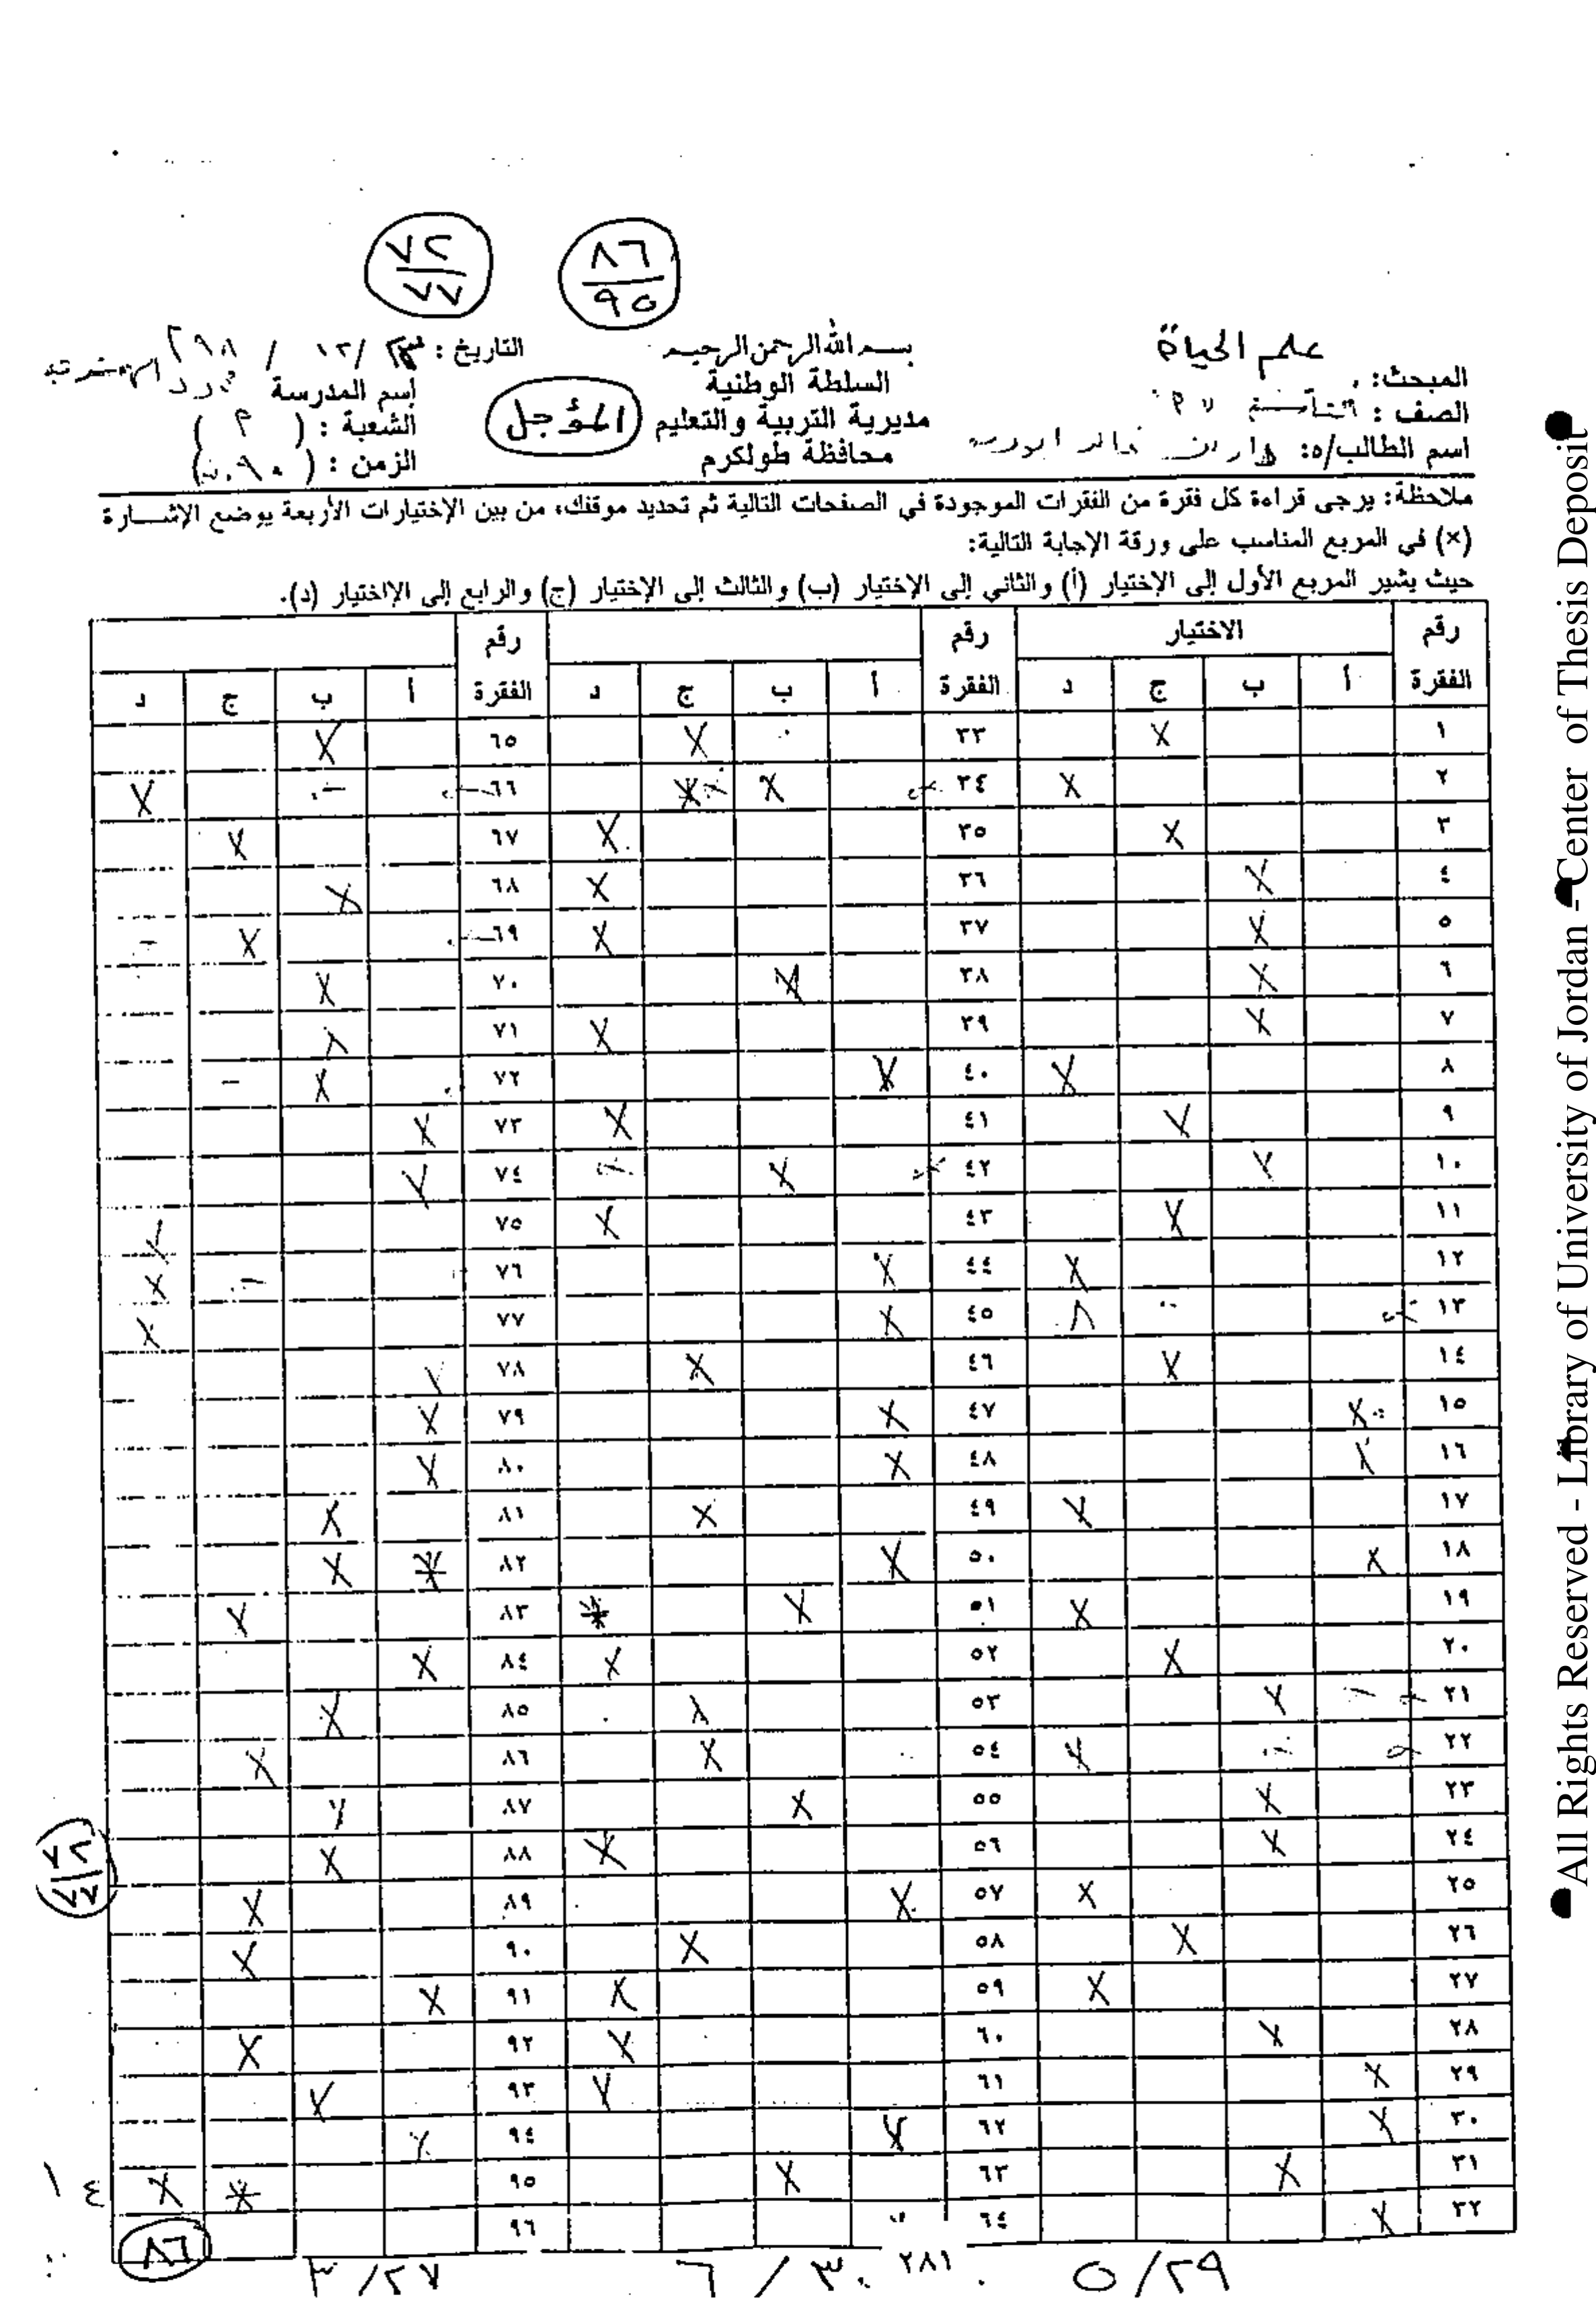 ٧٢
٧٧
٨٦
٩٥
علم الحياة
بسم الله الرحمن الرحيم
التاريخ : / ١٢ / ٩٨
المبحث:
السلطة الوطنية
إسم المدرسة
الصف : التاسع
مديرية التربية والتعليم
المؤجل
الشعبة : ( ٢ )
اسم الطالب/ه: خالد
محافظة طولكرم
الزمن : ( ٩٠ د )
ملاحظة: يرجى قراءة كل فقرة من الفقرات الموجودة في الصفحات التالية ثم تحديد موقفك، من بين الإختيارات الأربعة يوضع الإشارة
(×) في المربع المناسب على ورقة الإجابة التالية:
حيث يشير المربع الأول إلى الإختيار (أ) والثاني إلى الإختيار (ب) والثالث إلى الإختيار (ج) والرابع إلى الإاختيار (د).
رقم الاختيار رقم رقم
الفقرة أ ب ج د الفقرة أ ب ج د الفقرة أ ب ج د
١ X ٣٣ X ٦٥ X
٢ X ٣٤ X ٦٦ X
٣ X ٣٥ X ٦٧ X
٤ X ٣٦ X ٦٨ X
٥ X ٣٧ X ٦٩ X
٦ X ٣٨ X ٧٠ X
٧ X ٣٩ X ٧١ X
٨ X ٤٠ X ٧٢ X
٩ X ٤١ X ٧٣ X
١٠ X ٤٢ X ٧٤ X
١١ X ٤٣ X ٧٥ X
١٢ X ٤٤ X ٧٦ X
١٣ X ٤٥ X ٧٧ X
١٤ X ٤٦ X ٧٨ X
١٥ X ٤٧ X ٧٩ X
١٦ X ٤٨ X ٨٠ X
١٧ X ٤٩ X ٨١ X
١٨ X ٥٠ X ٨٢ X
١٩ X ٥١ X ٨٣ X
٢٠ X ٥٢ X ٨٤ X
٢١ X ٥٣ X ٨٥ X
٢٢ X ٥٤ X ٨٦ X
٢٣ X ٥٥ X ٨٧ X
٢٤ X ٥٦ X ٨٨ X
٢٥ X ٥٧ X ٨٩ X
٢٦ X ٥٨ X ٩٠ X
٢٧ X ٥٩ X ٩١ X
٢٨ X ٦٠ X ٩٢ X
٢٩ X ٦١ X ٩٣ X
٣٠ X ٦٢ X ٩٤ X
٣١ X ٦٣ X ٩٥ X
٣٢ X ٦٤ ٩٦
٧٢
٧٧
١ ٤
٨٦
٥/٢٩
٢٨١
٦ / ٣٠
٣/٢٧
All Rights Reserved - Library of University of Jordan - Center of Thesis Deposit